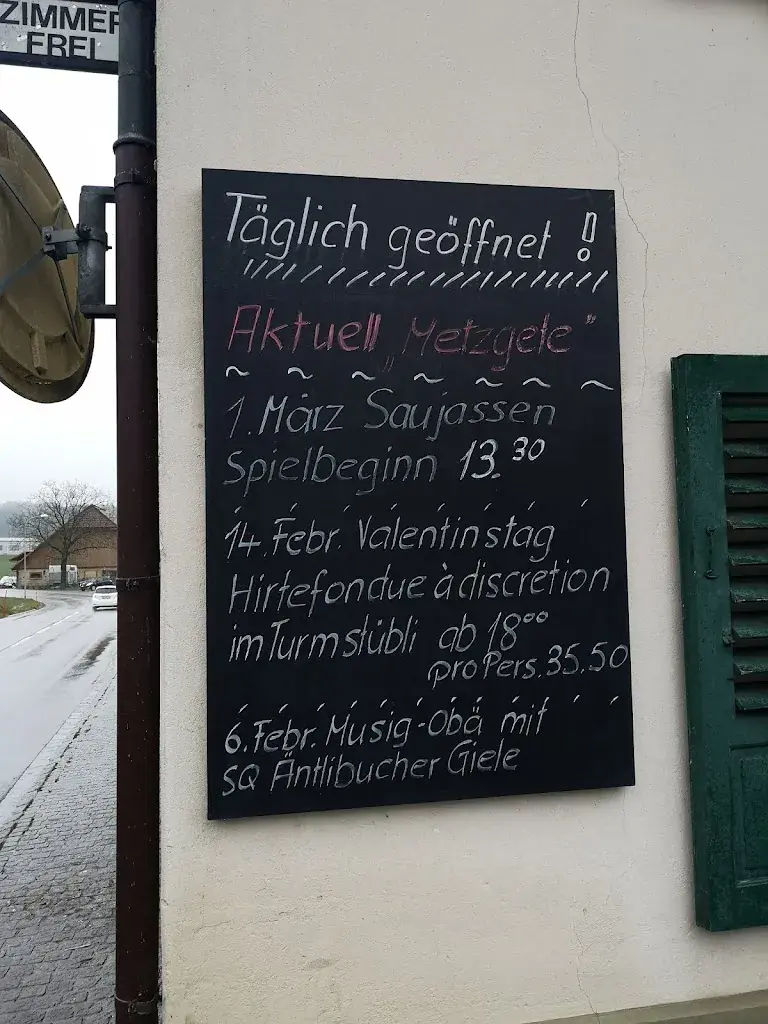 ZIMMER
FREI
Täglich geöffnet !
Aktuell „Metzgete"
1. März Saujassen
Spielbeginn 13.30
14. Febr. Valentinstag
Hirtefondue à discretion
im Turmstübli ab 18⁰⁰
pro Pers. 35.50
6. Febr. Musig-Obä mit
SQ Äntlibucher Giele